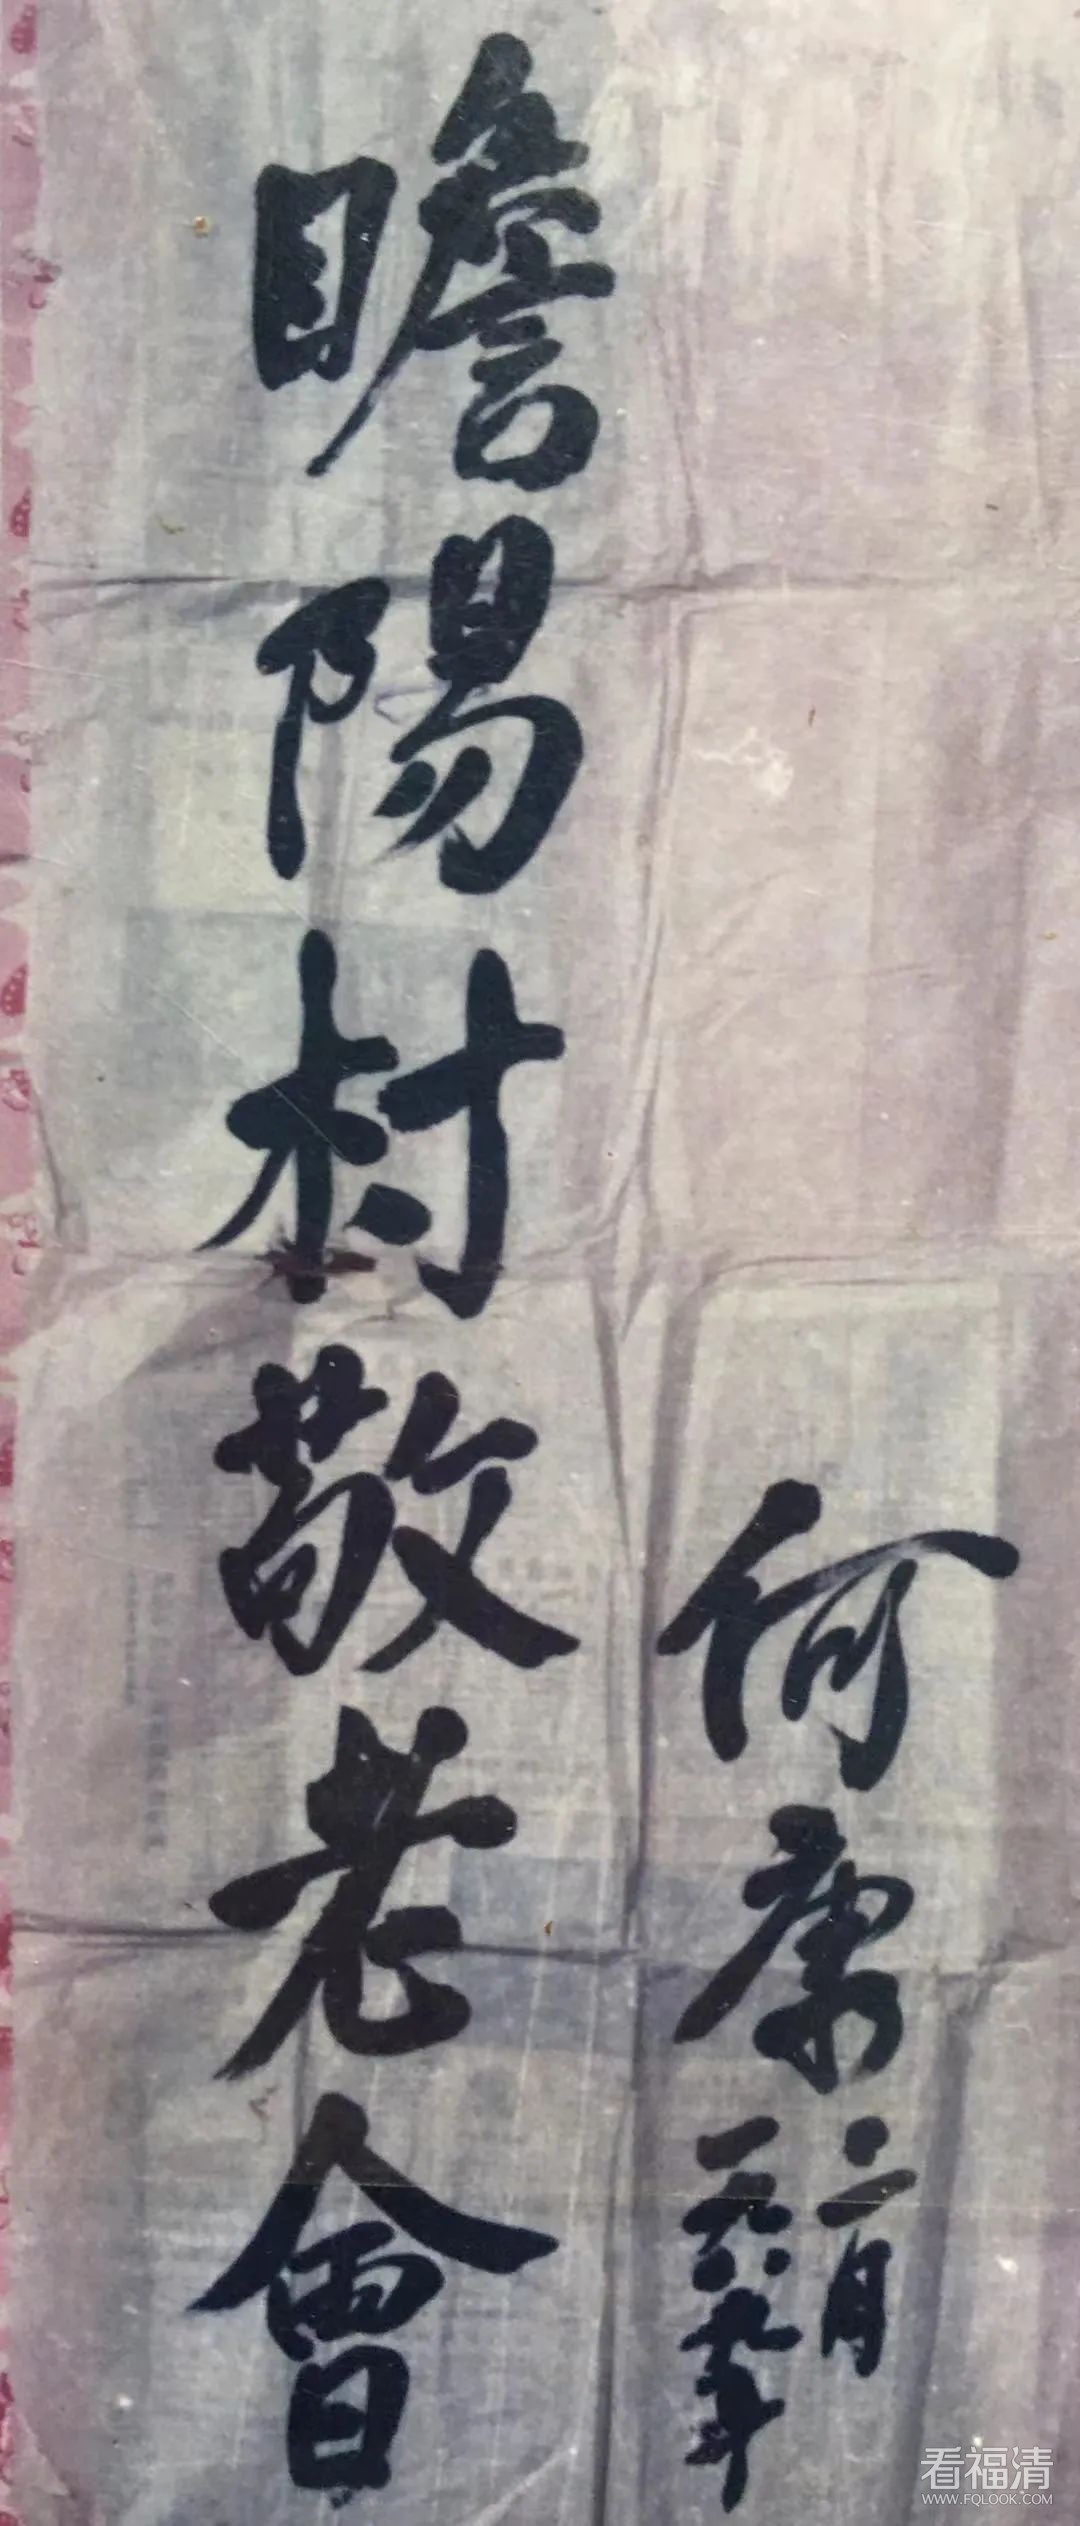 瞻陽村敬老會
何康
一九八九年
二月
看福清
WWW.FQLOOK.COM